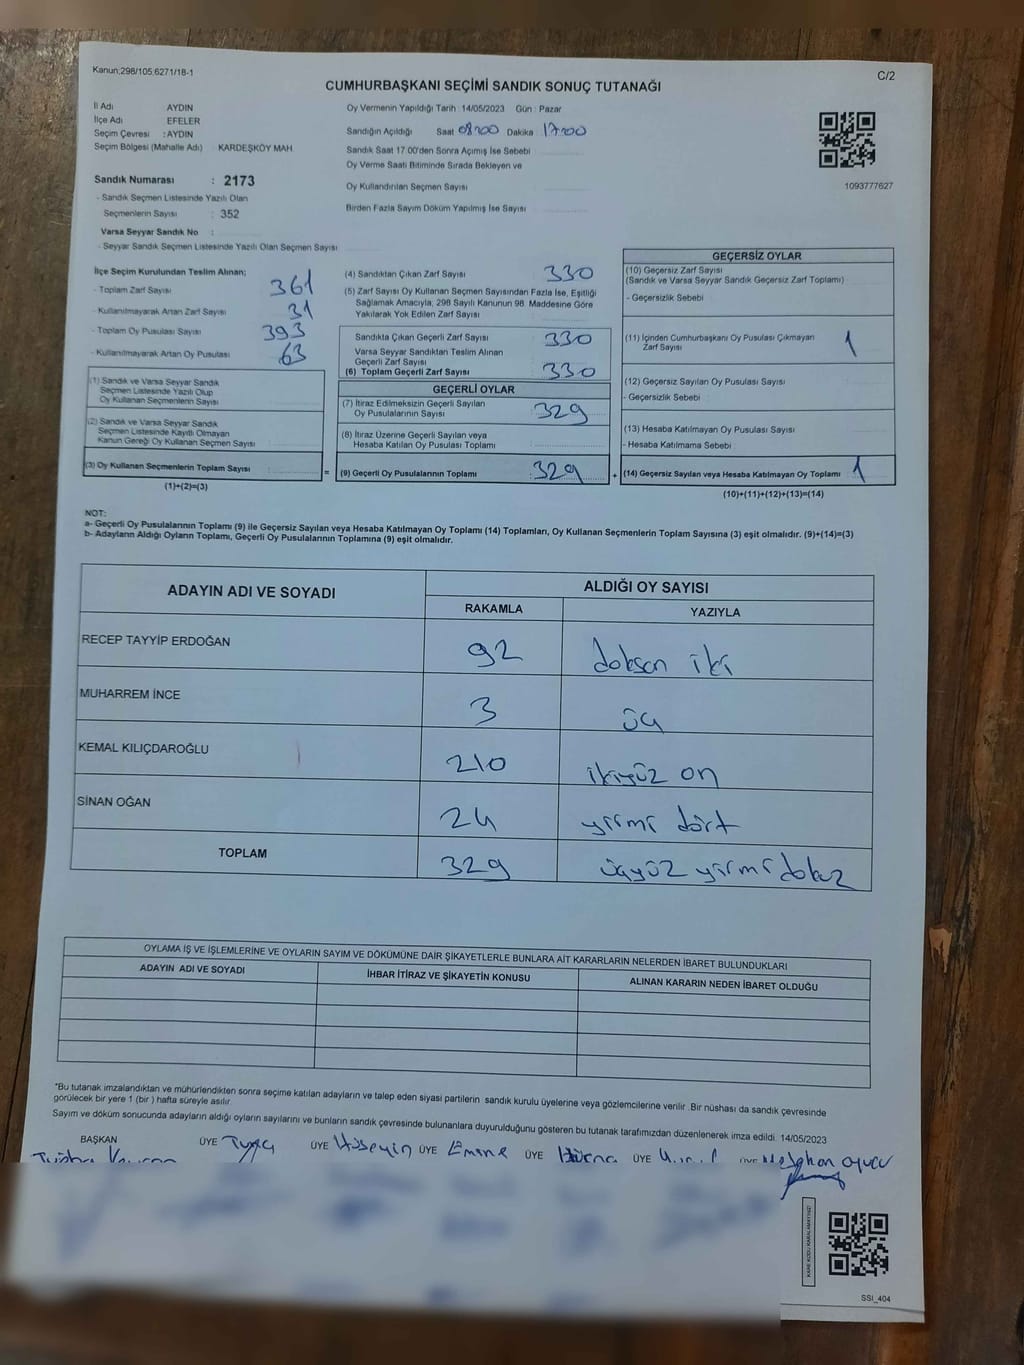 Kanun;298/105,6271/18-1
C/2
CUMHURBAŞKANI SEÇİMİ SANDIK SONUÇ TUTANAĞI
İl Adı AYDIN
İlçe Adı EFELER
Seçim Çevresi : AYDIN
Seçim Bölgesi (Mahalle Adı) KARDEŞKÖY MAH
Sandık Numarası : 2173
- Sandık Seçmen Listesinde Yazılı Olan
Seçmenlerin Sayısı : 352
Varsa Seyyar Sandık No :
- Seyyar Sandık Seçmen Listesinde Yazılı Olan Seçmen Sayısı
Oy Vermenin Yapıldığı Tarih : 14/05/2023 Gün : Pazar
Sandığın Açıldığı Saat 08:00 Dakika : 17:00
Sandık Saat 17.00'den Sonra Açımış İse Sebebi
Oy Verme Saati Bitiminde Sırada Bekleyen ve
Oy Kullandırılan Seçmen Sayısı
Birden Fazla Sayım Döküm Yapılmış İse Sayısı
1093777627
İlçe Seçim Kurulundan Teslim Alınan;
- Toplam Zarf Sayısı 361
- Kullanılmayarak Artan Zarf Sayısı 31
- Toplam Oy Pusulası Sayısı 393
- Kullanılmayarak Artan Oy Pusulası 63
(1) Sandık ve Varsa Seyyar Sandık
Seçmen Listesinde Yazılı Olup
Oy Kullanan Seçmenlerin Sayısı
(2) Sandık ve Varsa Seyyar Sandık
Seçmen Listesinde Kayıtlı Olmayan
Kanun Gereği Oy Kullanan Seçmen Sayısı
(3) Oy Kullanan Seçmenlerin Toplam Sayısı =
(1)+(2)=(3)
(4) Sandıktan Çıkan Zarf Sayısı 330
(5) Zarf Sayısı Oy Kullanan Seçmen Sayısından Fazla İse, Eşitliği
Sağlamak Amacıyla, 298 Sayılı Kanunun 98. Maddesine Göre
Yakılarak Yok Edilen Zarf Sayısı
Sandıkta Çıkan Geçerli Zarf Sayısı 330
Varsa Seyyar Sandıktan Teslim Alınan
Geçerli Zarf Sayısı
(6) Toplam Geçerli Zarf Sayısı 330
GEÇERLİ OYLAR
(7) İtiraz Edilmeksizin Geçerli Sayılan
Oy Pusulalarının Sayısı 329
(8) İtiraz Üzerine Geçerli Sayılan veya
Hesaba Katılan Oy Pusulası Toplamı
(9) Geçerli Oy Pusulalarının Toplamı 329 +
GEÇERSİZ OYLAR
(10) Geçersiz Zarf Sayısı
(Sandık ve Varsa Seyyar Sandık Geçersiz Zarf Toplamı)
- Geçersizlik Sebebi
(11) İçinden Cumhurbaşkanı Oy Pusulası Çıkmayan
Zarf Sayısı 1
(12) Geçersiz Sayılan Oy Pusulası Sayısı
- Geçersizlik Sebebi
(13) Hesaba Katılmayan Oy Pusulası Sayısı
- Hesaba Katılmama Sebebi
(14) Geçersiz Sayılan veya Hesaba Katılmayan Oy Toplamı 1
(10)+(11)+(12)+(13)=(14)
NOT:
a- Geçerli Oy Pusulalarının Toplamı (9) ile Geçersiz Sayılan veya Hesaba Katılmayan Oy Toplamı (14) Toplamları, Oy Kullanan Seçmenlerin Toplam Sayısına (3) eşit olmalıdır. (9)+(14)=(3)
b- Adayların Aldığı Oyların Toplamı, Geçerli Oy Pusulalarının Toplamına (9) eşit olmalıdır.
ADAYIN ADI VE SOYADI ALDIĞI OY SAYISI
RAKAMLA YAZIYLA
RECEP TAYYİP ERDOĞAN 92 doksan iki
MUHARREM İNCE 3 üç
KEMAL KILIÇDAROĞLU 210 ikiyüz on
SİNAN OĞAN 24 yirmi dört
TOPLAM 329 üçyüz yirmi dokuz
OYLAMA İŞ VE İŞLEMLERİNE VE OYLARIN SAYIM VE DÖKÜMÜNE DAİR ŞİKAYETLERLE BUNLARA AİT KARARLARIN NELERDEN İBARET BULUNDUKLARI
ADAYIN ADI VE SOYADI İHBAR İTİRAZ VE ŞİKAYETİN KONUSU ALINAN KARARIN NEDEN İBARET OLDUĞU
*Bu tutanak imzalandıktan ve mühürlendikten sonra seçime katılan adayların ve talep eden siyasi partilerin sandık kurulu üyelerine veya gözlemcilerine verilir .Bir nüshası da sandık çevresinde
görülecek bir yere 1 (bir ) hafta süreyle asılır.
Sayım ve döküm sonucunda adayların aldığı oyların sayılarını ve bunların sandık çevresinde bulunanlara duyurulduğunu gösteren bu tutanak tarafımızdan düzenlenerek imza edildi. 14/05/2023
BAŞKAN ÜYE ÜYE Hüseyin ÜYE Emine ÜYE ÜYE
KARE KODU KARALAMAYINIZ!
SSI_404